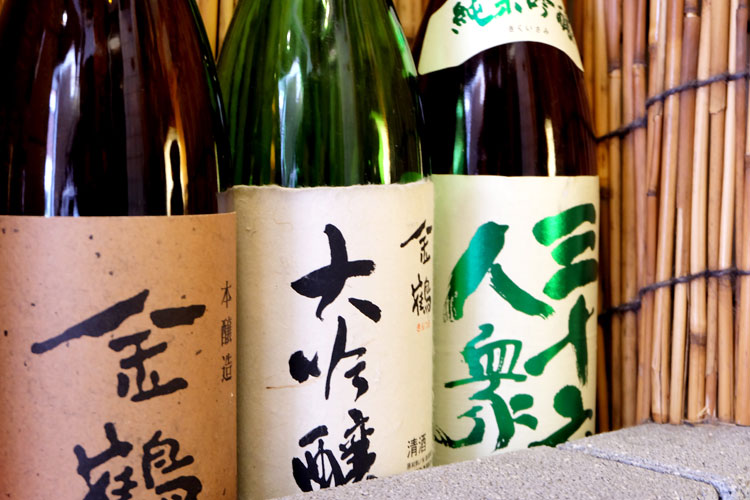 本醸造
金鶴
金鶴
大吟醸
清酒
純米吟醸
三十六
人衆